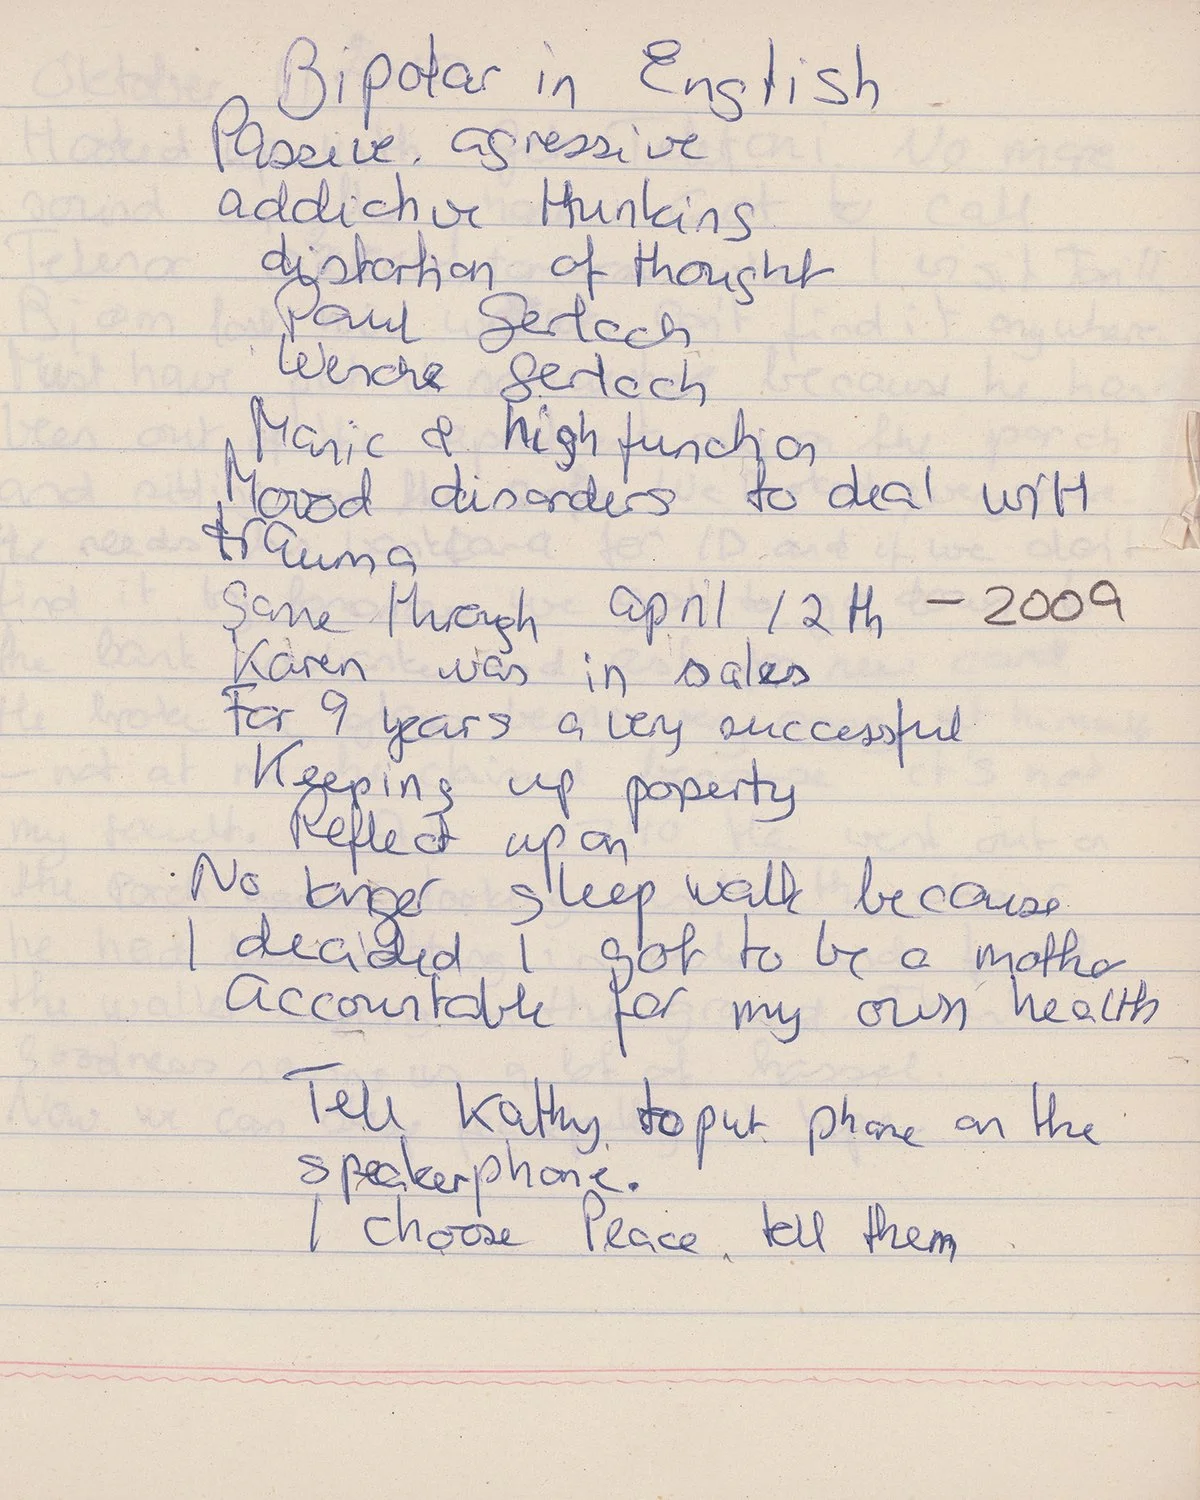 Bipolar in English
Passive. agressive
addictive thinking
distortion of thought
Paul Gerlach
Gerlach
Manic & high function
Mood disorders to deal with
trauma
Same through april 12th - 2009
Karen was in sales
For 9 years a very successful
Keeping up poperty
Reflect upon
No longer sleep walk because
I decided I got to be a mother
Accountable for my own health
Tell Kathy to put phone on the
speakerphone.
I choose Peace. tell them